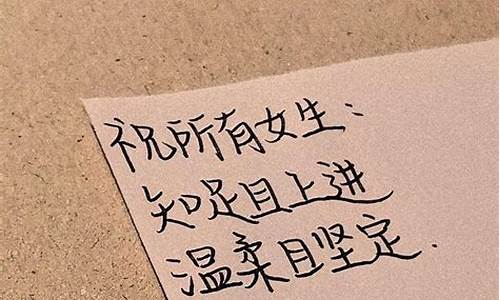 祝所有女生：
知足且上进
温柔且坚定.